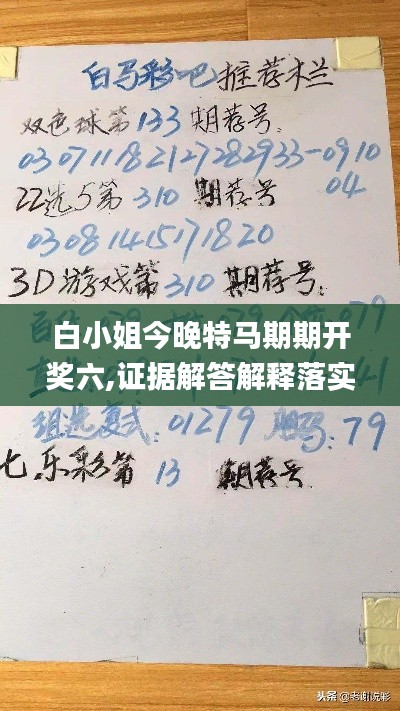 白马彩吧推荐栏
双色球第133期荐号:
03 07 11 18 21 27 28 29 33-09 10
04
22选5第310期荐号
03 08 14 15 17 18 20
3D游戏第310期荐号:
79
白小姐今晚特马期期开
奖六,证据解答解释落实
41
组选复式:01279 胆码:79
七乐彩第13期荐号
头条@老谢说彩